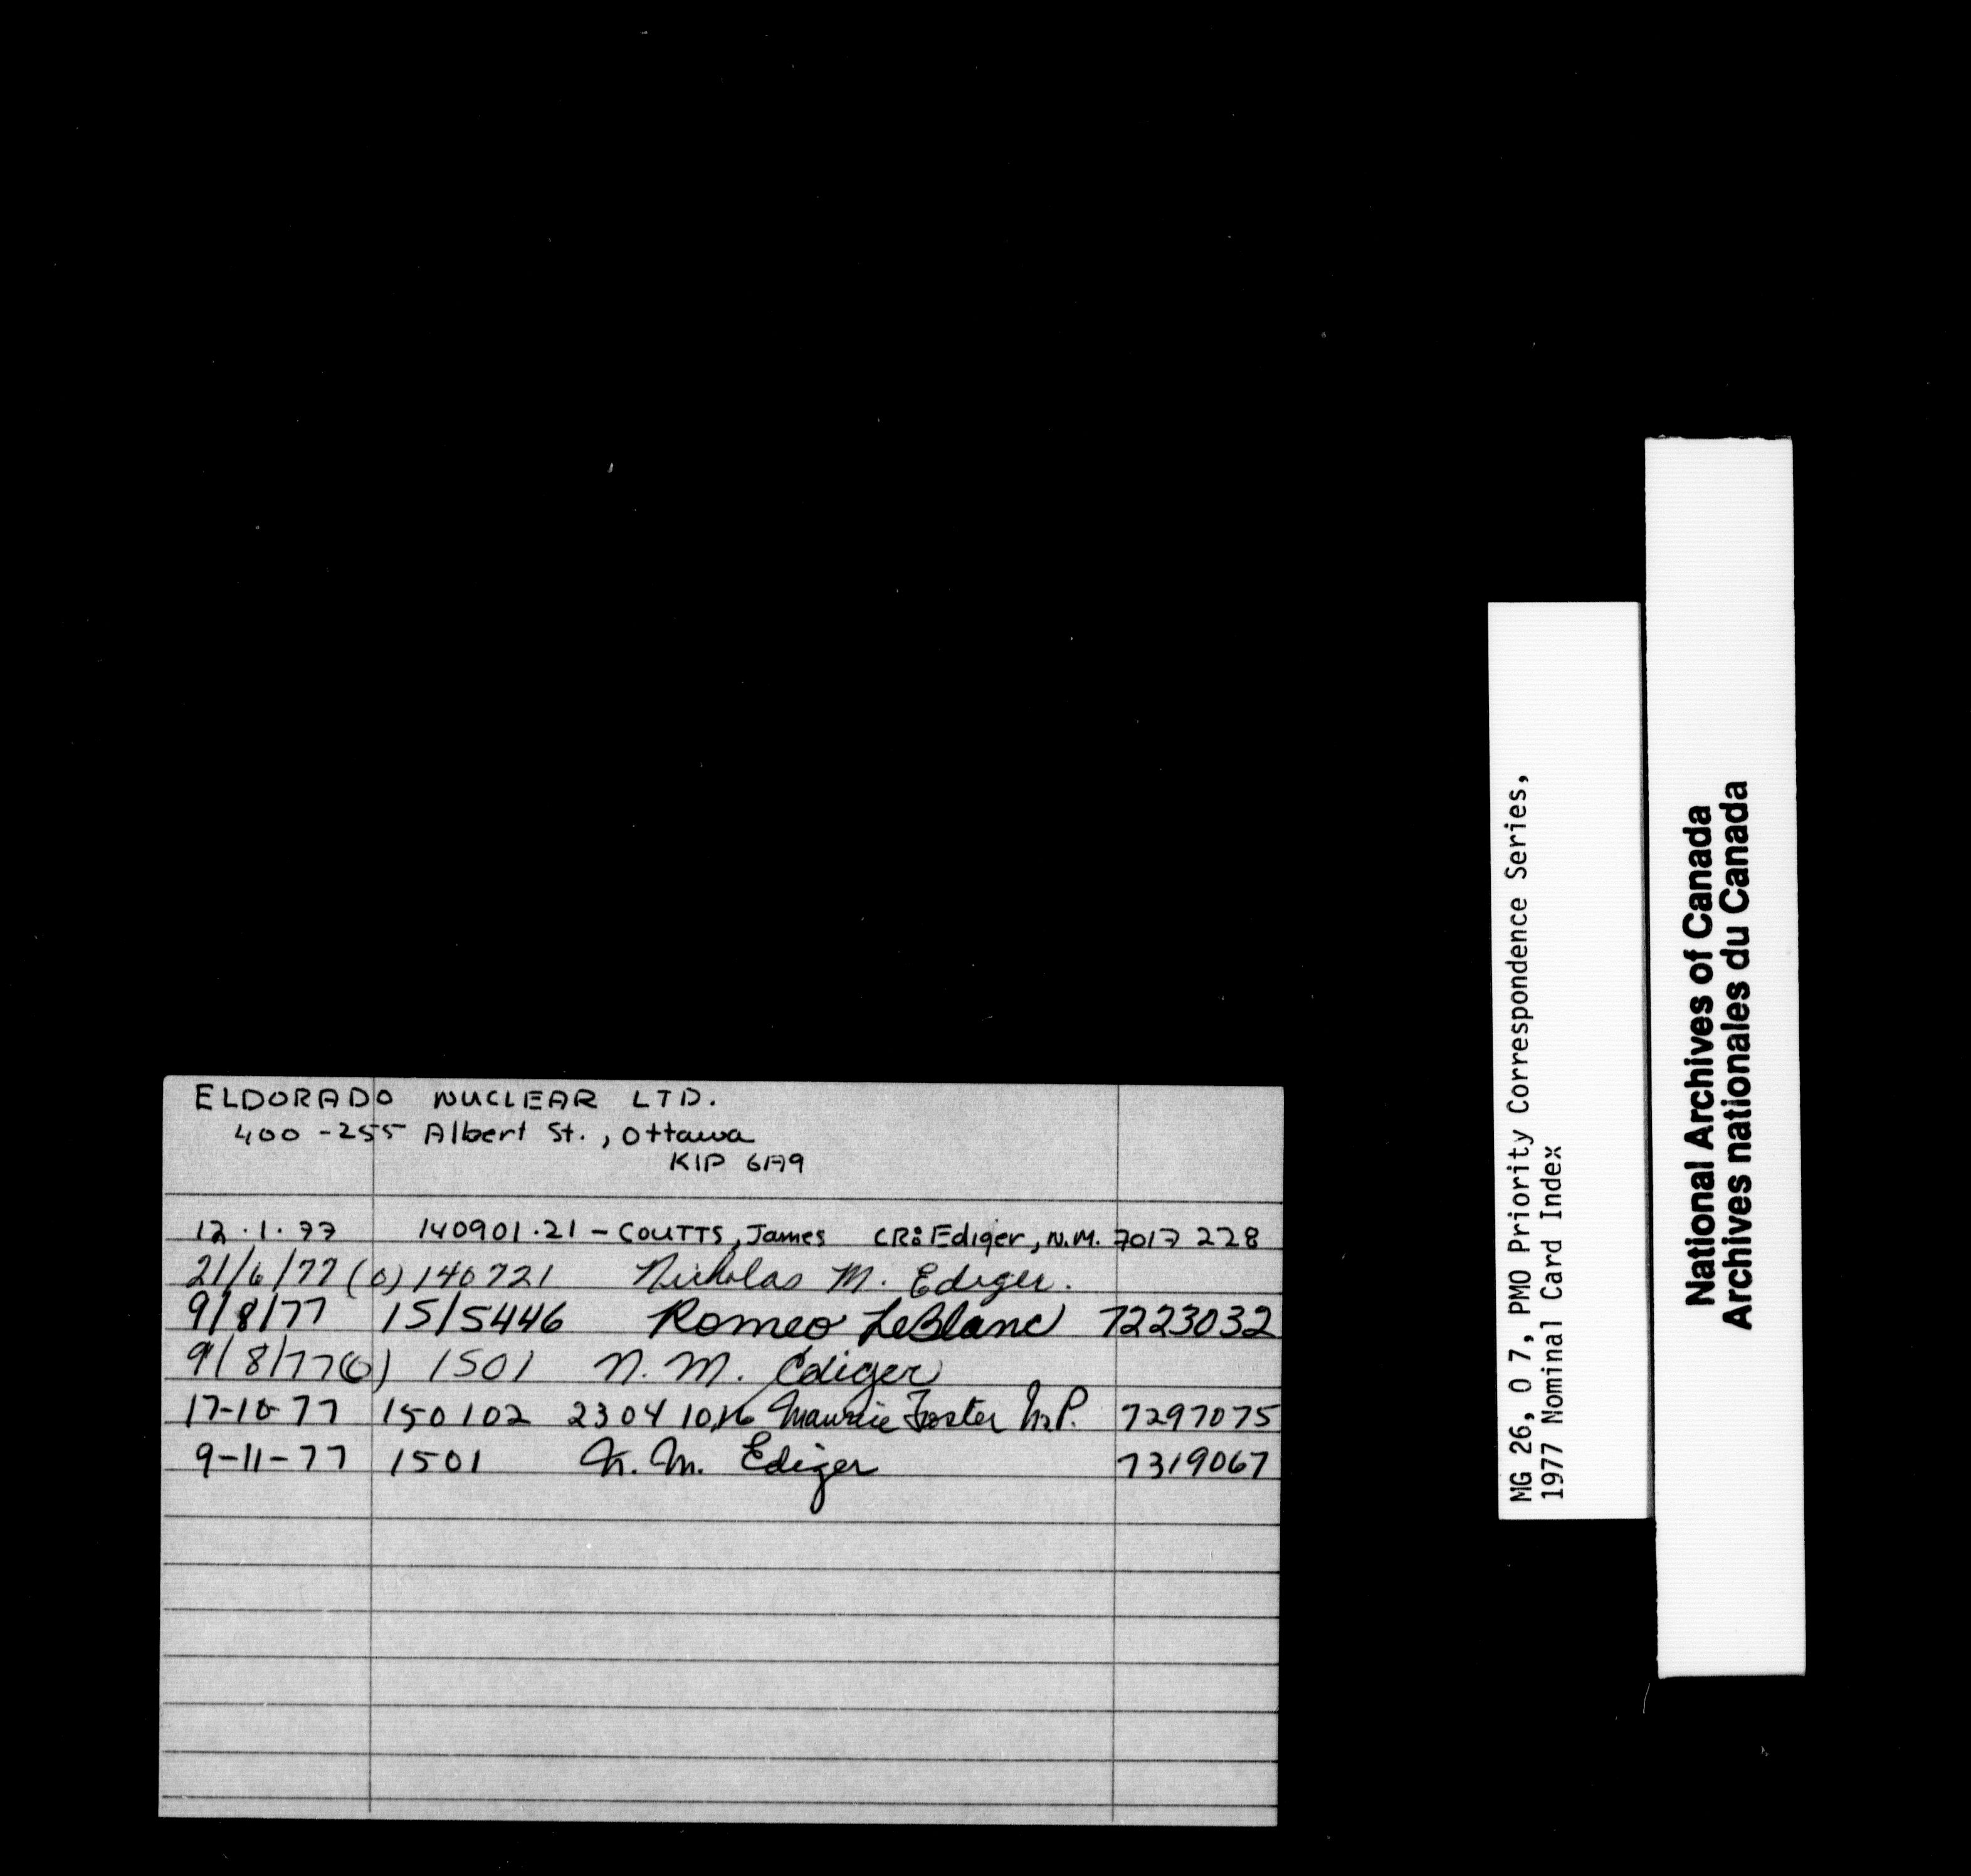 ELDORADO NUCLEAR LTD.
400-255 Albert St., Ottawa
K1P 6A9
12.1.77 140901.21 - COUTTS, James CR: Ediger, N.M. 7017 228
21/6/77 (0) 140721 Nicholas M. Ediger.
9/8/77 15/5446 Romeo LeBlanc 7223032
9/8/77 (0) 1501 N. M. Ediger
17-10-77 150102 2304 10,16 Maurice Foster M.P. 7297075
9-11-77 1501 N. M. Ediger 7319067
MG 26, O 7, PMO Priority Correspondence Series,
1977 Nominal Card Index
National Archives of Canada
Archives nationales du Canada